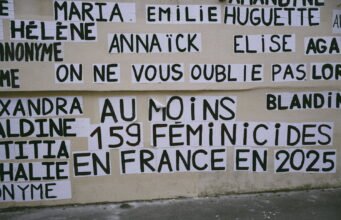 AMANDYNE
MARIA EMILIE HUGUETTE
HÉLÈNE
ANONYME ANNAÏCK ELISE AGA
ME ON NE VOUS OUBLIE PAS LOR
EXANDRA AU MOINS BLANDIN
ALDINE 159 FÉMINICIDES
TITIA EN FRANCE EN 2025
HALIE
ONYME